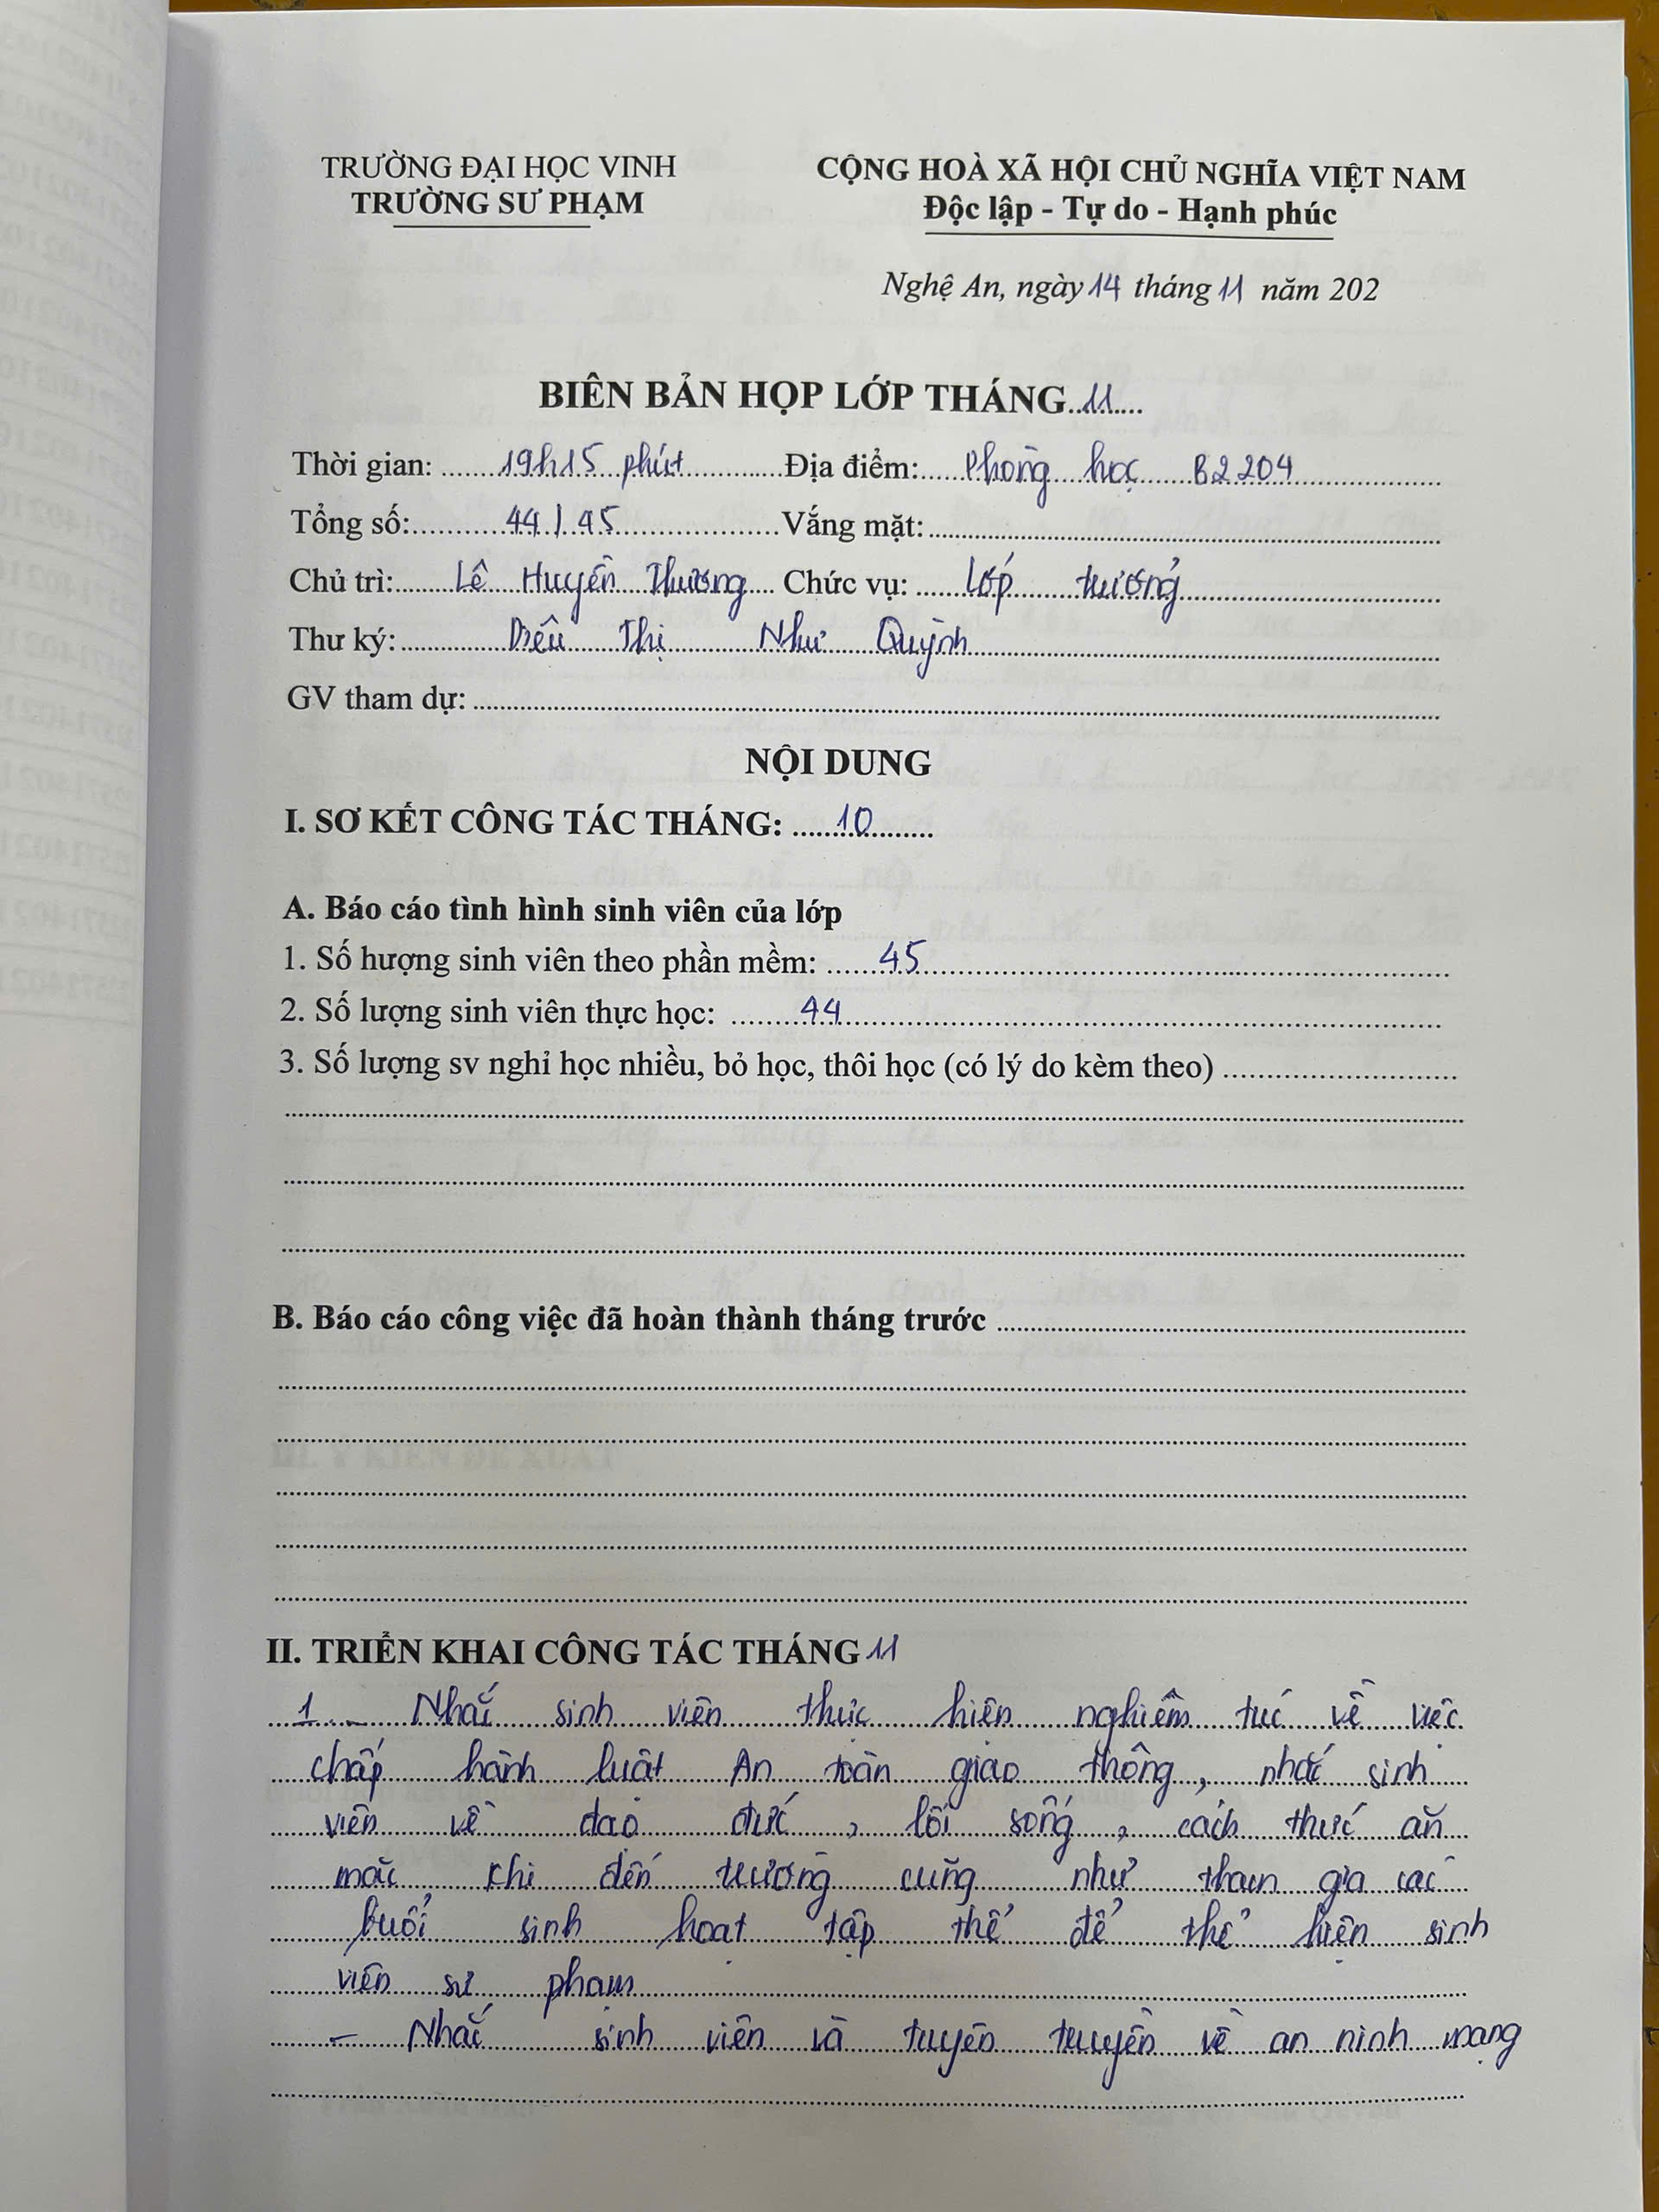 TRƯỜNG ĐẠI HỌC VINH
TRƯỜNG SƯ PHẠM
CỘNG HOÀ XÃ HỘI CHỦ NGHĨA VIỆT NAM
Độc lập - Tự do - Hạnh phúc
Nghệ An, ngày 14 tháng 11 năm 202
BIÊN BẢN HỌP LỚP THÁNG..11....
Thời gian: 19h15 phút Địa điểm: Phòng học B2.204
Tổng số: 44/45 Vắng mặt:
Chủ trì: Lê Huyền Thương Chức vụ: lớp trưởng
Thư ký: Thị Như Quỳnh
GV tham dự:
NỘI DUNG
I. SƠ KẾT CÔNG TÁC THÁNG: 10
A. Báo cáo tình hình sinh viên của lớp
1. Số hượng sinh viên theo phần mềm: 45
2. Số lượng sinh viên thực học: 44
3. Số lượng sv nghỉ học nhiều, bỏ học, thôi học (có lý do kèm theo)
B. Báo cáo công việc đã hoàn thành tháng trước
II. TRIỂN KHAI CÔNG TÁC THÁNG 11
1. - Nhắc sinh viên thực hiện nghiêm túc về việc
chấp hành luật An toàn giao thông, nhắc sinh
viên về đạo đức, lối sống, cách thức ăn
mặc khi đến trường cũng như tham gia các
buổi sinh hoạt tập thể để thể hiện sinh
viên sư phạm
- Nhắc sinh viên và tuyên truyền về an ninh mạng